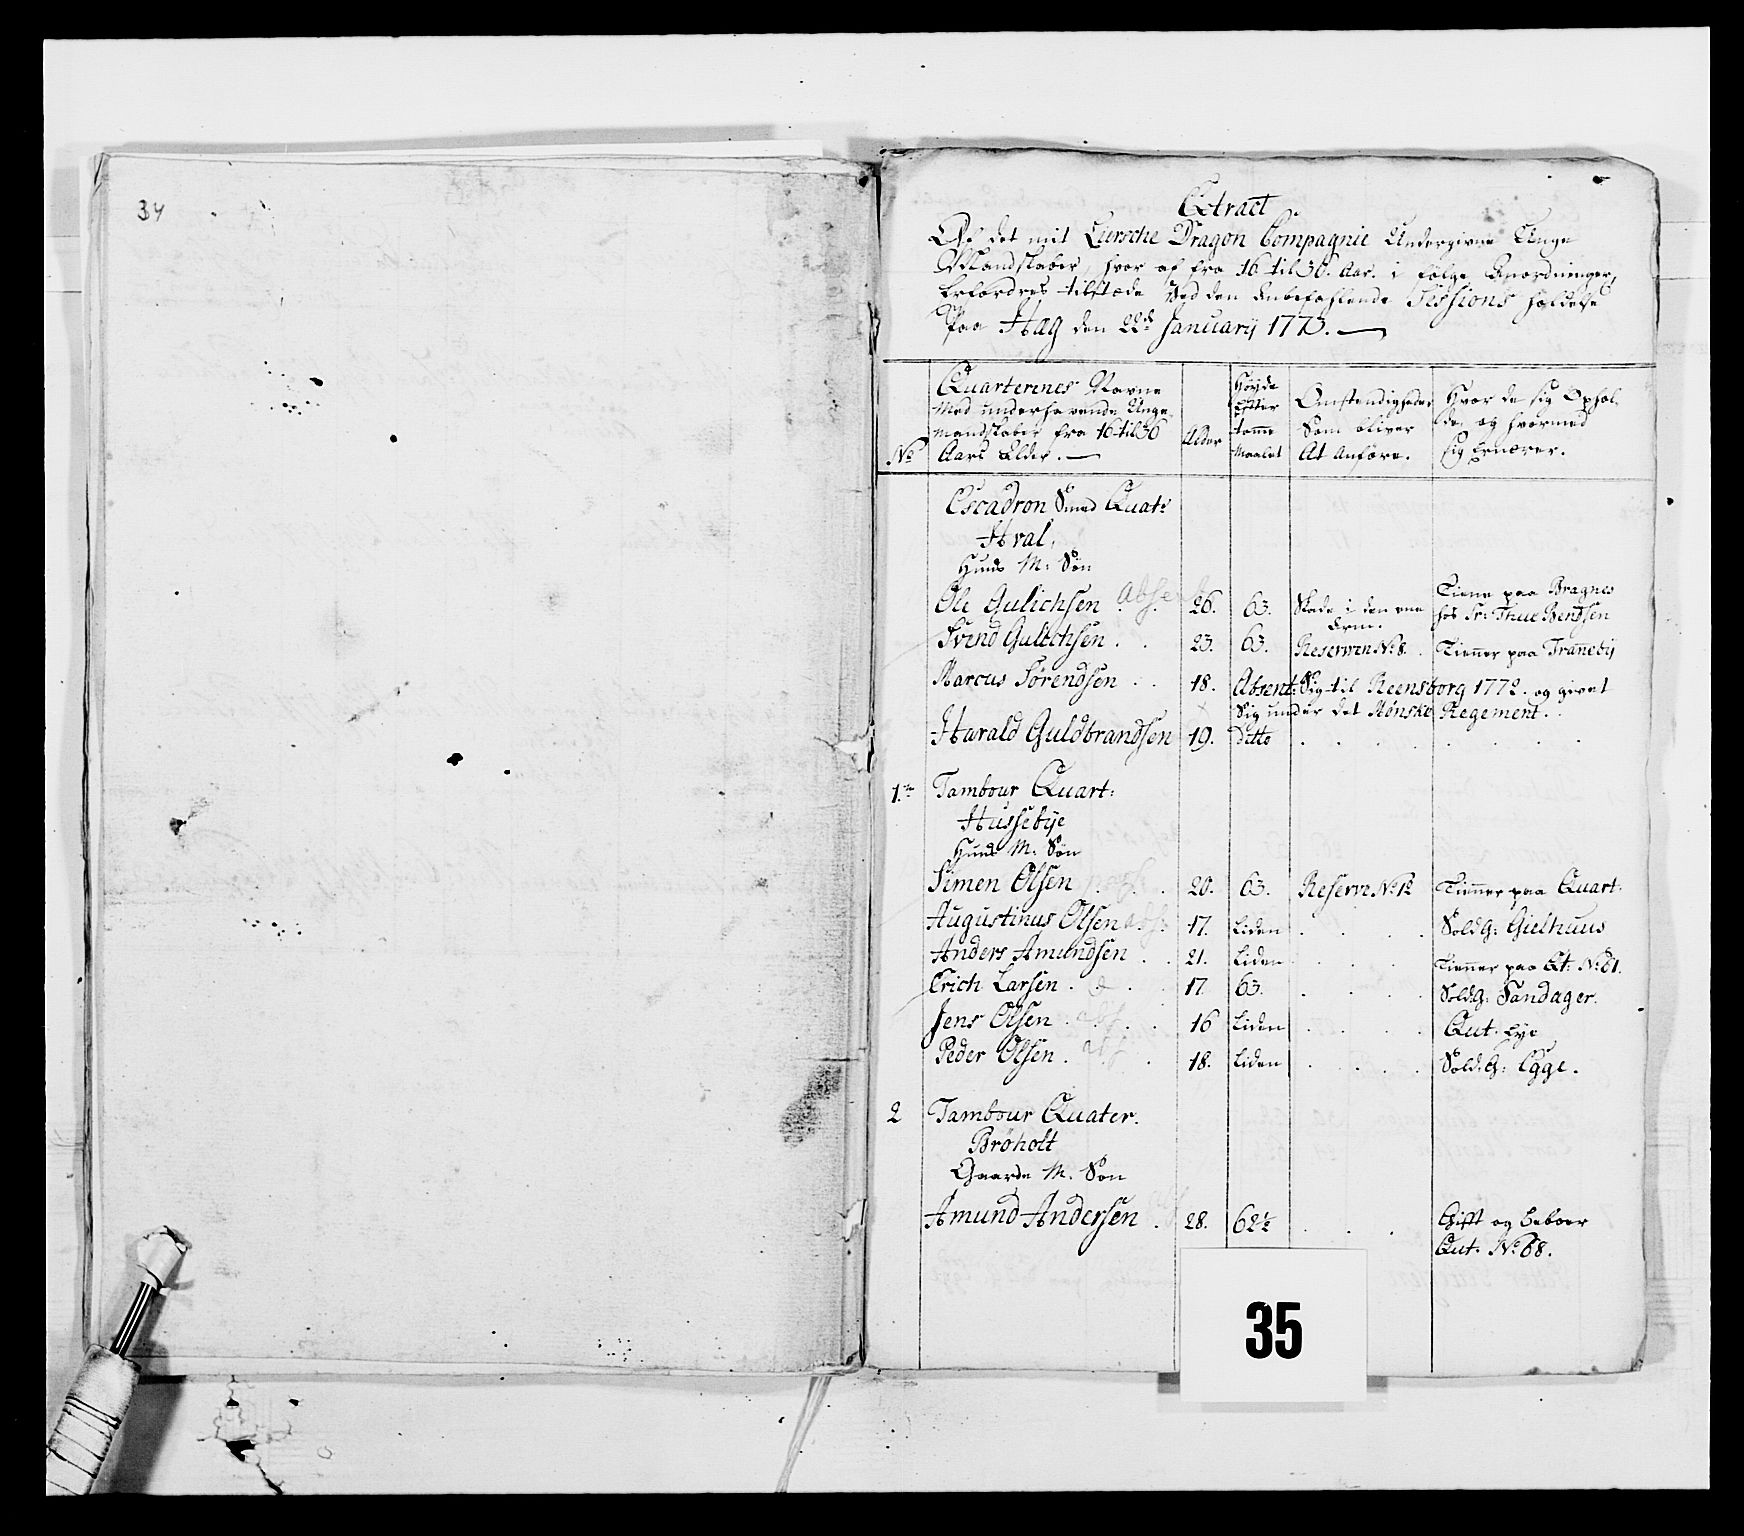 34
Extract
Af det mit Liersche Dragon Compagnie Undergivne Unge
Mandskaber, hvor af fra 16 til 36. Aar. i følge Anordninger,
Erfordres tilstæde Ved den Anbefahlende Sessions holdelse
Paa Hag den 22de January 1773.
No
Quarterenes Navne
Med underhavende Unge
Mandskaber fra 16 til 36
Aars Elder.
Alder
Høyde
Efter
tomme
Maalet
Omstendigheder
Som bliver
At Anføre.
Hvor de sig Ophol-
der og hvormed
sig Ernærer.
Escadron Smed Quatr
Hval,
Huus M: Søn
Ole Gulichsen Absent 26. 63. Skade i den ene Arm. Tiene paa Bragnes
hos Sr: Thue Bendsen
Svend Gulichsen . . 23. 63. Reserven No 8. Tienner paa Tranneby
Marcus Sørendsen . . 18. Absent: Sig til Reensborg 1772. og givet
Sig under det Mønske Regement.
Harald Guldbrandsen 19. ditto
1te Tambour Quart:
Hussebye
Huus M: Søn
Simen Olsen . . . 20. 63. Reserve No 12 Tienner paa Quart:
Augustinus Olsen abs: 17. Liden . . Sold G: Gielhuus
Anders Amundsen . . 21. Liden . . . Tienner paa Qt: No 61.
Erich Larsen . . . 17 63. . . . Sold: G: Sandager.
Jens Olsen . abs . . 16 Liden . . . . Qut: Lye
Peder Olsen . abs . 18. Liden . . . . Sold: G: Egge.
2 Tambour Quater.
Brøholt
Gaarde M: Søn
Amund Andersen . 28. 62½ . . . Gift og beboer
Qut: No 68.
35